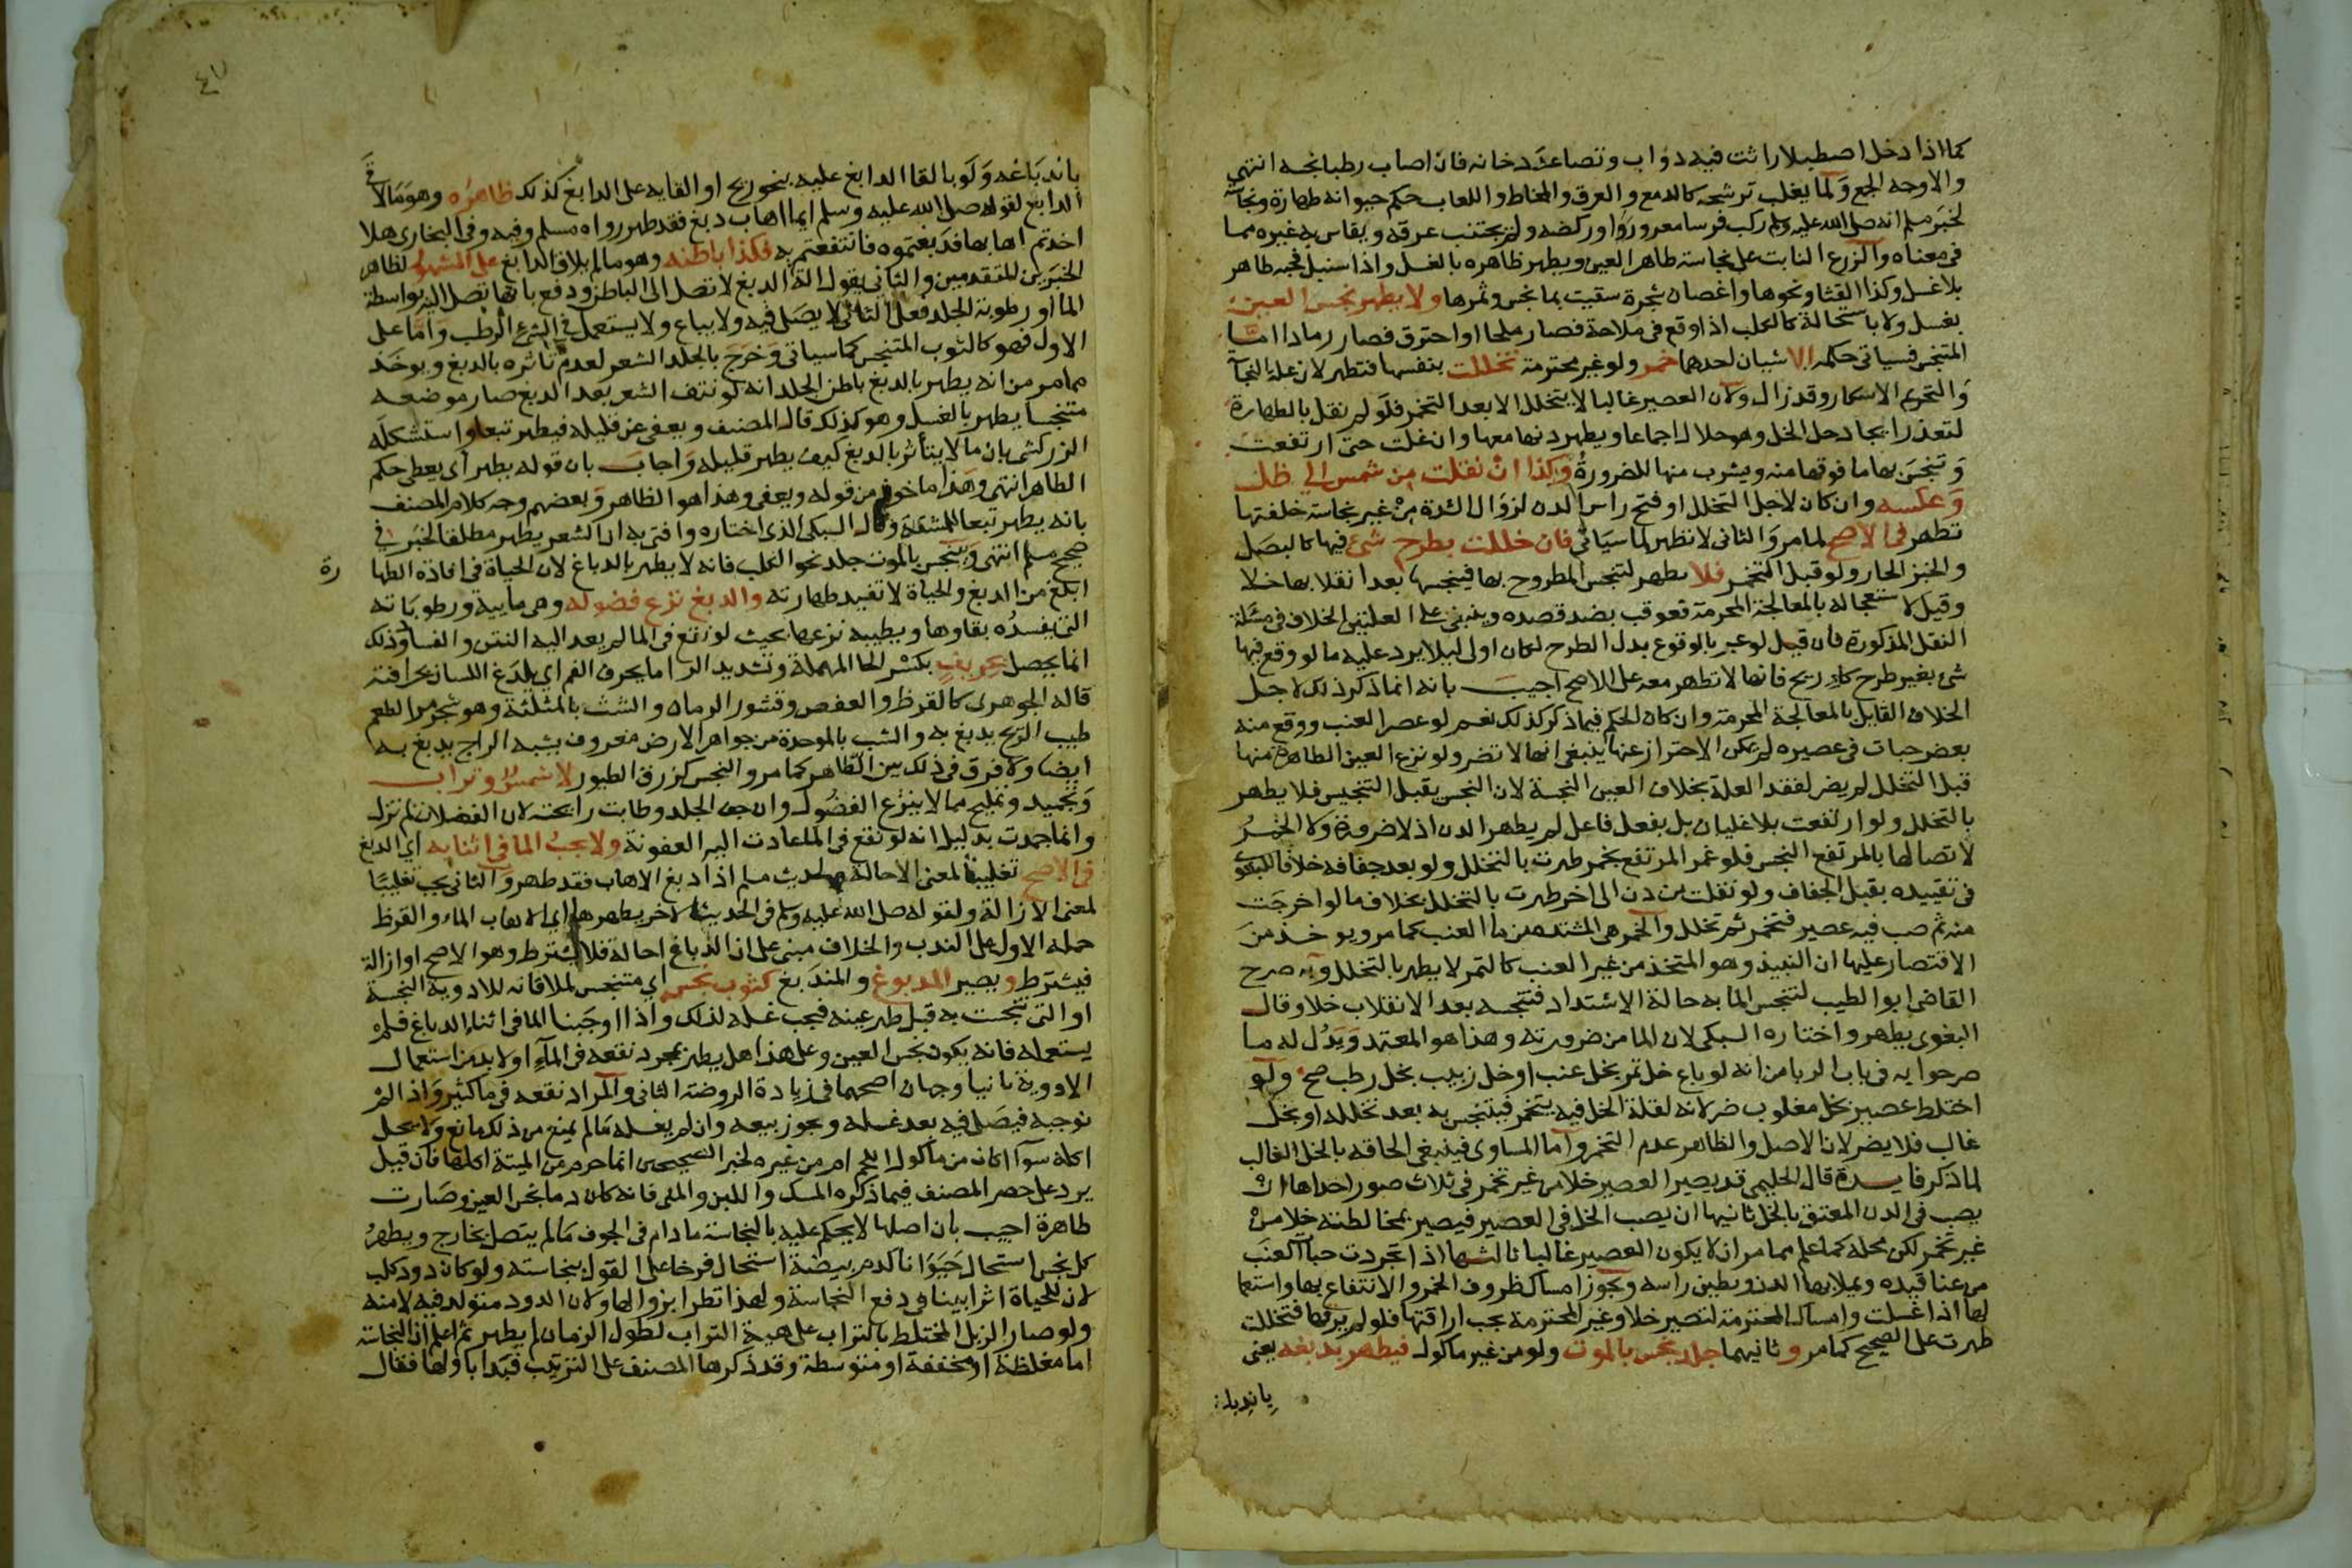 كما اذا دخل اصطبلا راثت فيه دواب وتصاعد دخانه فان اصاب رطبا نجسه انتهى
والاوجه الجمع ولما يغلب ترشحه كالدمع والعرق والمخاط واللعاب حكم حيوانه طهارة ونجاسة
لخبر مسلم انه صلى الله عليه وسلم ركب فرسا معرورا وركضه ولم يجتنب عرقه ويقاس به غيره مما
في معناه والزرع النابت على نجاسة طاهر العين ويطهر ظاهره بالغسل واذا سنبل فحبه طاهر
بلا غسل وكذا القثا ونحوها واغصان شجرة سقيت بما نجس وثمرها ولا يطهر نجس العين
بغسل ولا باستحالة كالكلب اذا وقع في ملاحة فصار ملحا او احترق فصار رمادا اما
المتنجس فسياتي حكمه الا شيان احدهما خمر ولو غير محترمة تخللت بنفسها فتطهر لان علة النجاسة
والتحريم الاسكار وقد زال ولان العصير غالبا لا يتخلل الا بعد التخمر فلو لم نقل بالطهارة
لتعذر ايجاد حل الخل وهو حلال اجماعا ويطهر دنها معها وان غلت حتى ارتفعت
وتنجس بها ما فوقها منه ويشرب منها للضرورة وكذا ان نقلت من شمس الى ظل
وعكسه وان كان لاجل التخلل او فتح راس الدن لزوال الشدة من غير نجاسة خلفتها
تطهر في الاصح لما مر والثاني لا تطهر لما سياتي فان خللت بطرح شئ فيها كالبصل
والخبز الحار ولو قبل التخمر فلا تطهر لتنجس المطروح بها فينجسها بعد انقلابها خلا
وقيل لاستعجاله بالمعالجة المحرمة فعوقب بضد قصده وينبني على العلتين الخلاف في مسئلة
النقل المذكورة فان قيل لو عبر بالوقوع بدل الطرح لكان اولى ليلا يرد عليه ما لو وقع فيها
شئ بغير طرح كالقا ريح فانها لا تطهر معه على الاصح اجيب بانه انما ذكر ذلك لاجل
الخلاف القايل بالمعالجة المحرمة وان كان الحكم فيما ذكر كذلك نعم لو عصر العنب ووقع منه
بعض حبات في عصيره لم يمكن الاحتراز عنها ينبغي انها لا تضر ولو نزع العين الطاهرة منها
قبل التخلل لم يضر لفقد العلة بخلاف العين النجسة لان النجس يقبل التنجيس فلا يطهر
بالتخلل ولو ارتفعت بلا غليان بل بفعل فاعل لم يطهر الدن اذ لا ضرورة ولا الخمر
لاتصالها بالمرتفع النجس فلو غمر المرتفع بخمر طهرت بالتخلل ولو بعد جفافه خلافا للبغوي
في تقييده بقبل الجفاف ولو نقلت من دن الى اخر طهرت بالتخلل بخلاف ما لو اخرجت
منه ثم صب فيه عصير فتخمر ثم تخلل والخمر هي المشتدة من ما العنب كما مر ويوخذ من
الاقتصار عليها ان النبيذ وهو المتخذ من غير العنب كالتمر لا يطهر بالتخلل وبه صرح
القاضي ابو الطيب لتنجس الما به حالة الاشتداد فتنجسه بعد الانقلاب خلا وقال
البغوي يطهر واختاره السبكي لان الما من ضرورته وهذا هو المعتمد ويدل له ما
صرحوا به في باب الربا من انه لو باع خل تمر بخل عنب او خل زبيب بخل رطب صح ولو
اختلط عصير بخل مغلوب ضر لانه لقلة الخل فيه يتخمر فيتنجس به بعد تخلله او بخل
غالب فلا يضر لان الاصل والظاهر عدم التخمر واما المساوي فينبغي الحاقه بالخل الغالب
لما ذكر فايدة قال الحليمي قد يصير العصير خلا من غير تخمر في ثلاث صور احداها ان
يصب في الدن المعتق بالخل ثانيها ان يصب الخل في العصير فيصير بمخالطته خلا من
غير تخمر لكن محله كما علم مما مر ان لا يكون العصير غالبا ثالثها اذا تجردت حبات العنب
من عناقيده ويملا بها الدن ويطين راسه ويجوز امساك ظروف الخمر والانتفاع بها واستعما
لها اذا غسلت وامساك المحترمة لتصير خلا وغير المحترمة يجب اراقتها فلو لم يرقها فتخللت
طهرت على الصحيح كما مر وثانيهما جلد نجس بالموت ولو من غير ماكول فيطهر بدبغه يعني
باندباغه
باندباغه ولو بالقا الدابغ عليه بنحو ريح او القايه على الدابغ كذلك ظاهره وهو ما لاقاه
الدابغ لقوله صلى الله عليه وسلم ايما اهاب دبغ فقد طهر رواه مسلم وفيه وفي البخاري هلا
اخذتم اهابها فدبغتموه فانتفعتم به فكذا باطنه وهو ما لم يلاق الدابغ على المشهور لظاهر
الخبرين المتقدمين والثاني يقول الة الدبغ لا تصل الى الباطن ودفع بانها تصل اليه بواسطة
الما او رطوبة الجلد فعلى الثاني لا يصلى فيه ولا يباع ولا يستعمل في الشئ الرطب واما على
الاول فهو كالثوب المتنجس كما سياتي وخرج بالجلد الشعر لعدم تاثره بالدبغ ويوخذ
مما مر من انه يطهر بالدبغ باطن الجلد انه لو نتف الشعر بعد الدبغ صار موضعه
متنجسا يطهر بالغسل وهو كذلك قال المصنف ويعفى عن قليله فيطهر تبعا واستشكله
الزركشي بان ما لا يتاثر بالدبغ كيف يطهر قليله واجاب بان قوله يطهر أي يعطى حكم
الطاهر انتهى وهذا ماخوذ من قوله ويعفى وهذا هو الظاهر وبعضهم وجه كلام المصنف
بانه يطهر تبعا للمشقة وقال السبكي الذي اختاره وافتي به ان الشعر يطهر مطلقا لخبر في
صحيح مسلم انتهى وبنجس بالموت جلد نحو الكلب فانه لا يطهر بالدباغ لان الحياة في افادة الطها رة
ابلغ من الدبغ والحياة لا تفيد طهارته والدبغ نزع فضوله وهي ماييته ورطوباته
التي يفسده بقاوها ويطيبه نزعها بحيث لو نقع في الما لم يعد اليه النتن والفساد وذلك
انما يحصل بحريف بكسر الحا المهملة وتشديد الرا ما يحرف الفم اي يلدغ اللسان بحرافته
قاله الجوهري كالقرظ والعفص وقشور الرمان والشث بالمثلثة وهو شجر مر الطعم
طيب الريح يدبغ به والشب بالموحدة من جواهر الارض معروف يشبه الزاج يدبغ به
ايضا ولا فرق في ذلك بين الطاهر كما مر والنجس كزرق الطيور لا شمس وتراب
وتجميد وتمليح مما لا ينزع الفضول وان جف الجلد وطابت رايحته لان الفضلات لم تزل
وانما جمدت بدليل انه لو نقع في الما عادت اليه العفونة ولا يجب الما في اثنايه اي الدبغ
في الاصح تغليبا لمعنى الاحالة ولحديث مسلم اذا دبغ الاهاب فقد طهر والثاني يجب تغليبا
لمعنى الازالة ولقوله صلى الله عليه وسلم في الحديث الاخر يطهرها اي الاهاب الماء والقرظ
حمله الاول على الندب والخلاف مبني على ان الدباغ احالة فلا يشترط وهو الاصح او ازالة
فيشترط ويصير المدبوغ والمندبغ كثوب نجس اي متنجس لملاقاته للادوية النجسة
او التي تنجست به قبل طهر عينه فيجب غسله لذلك واذا اوجبنا الما في اثناء الدباغ فلم
يستعمله فانه يكون نجس العين وعلى هذا هل يطهر بمجرد نقعه في الماء او لا بد من استعمال
الادوية ثانيا وجهان اصحهما في زيادة الروضة الثاني والمراد نقعه في ما كثير واذا لم
نوجبه فيصلى فيه بعد غسله ويجوز بيعه وان لم يغسله ما لم يمنع من ذلك مانع ولا يحل
اكله سوآ اكان من ماكول اللحم ام من غيره لخبر الصحيحين انما حرم من الميتة اكلها فان قيل
يرد على حصر المصنف فيما ذكره المسك واللبن والمني فانه كان دما نجس العين وصارت
طاهرة اجيب بان اصلها لا يحكم عليه بالنجاسة ما دام في الجوف ما لم يتصل بخارج ويطهر
كل نجس استحال حيوانا كدم بيضة استحال فرخا على القول بنجاسته ولو كان دود كلب
لان للحياة اثرا بينا في دفع النجاسة ولهذا تطرا بزوالها ولان الدود متولد فيه لا منه
ولو صار الزبل المختلط بالتراب على هيئة التراب لطول الزمان لم يطهر ثم اعلم ان النجاسة
اما مغلظة او مخففة او متوسطة وقد ذكرها المصنف على الترتيب فبدا باولها فقال